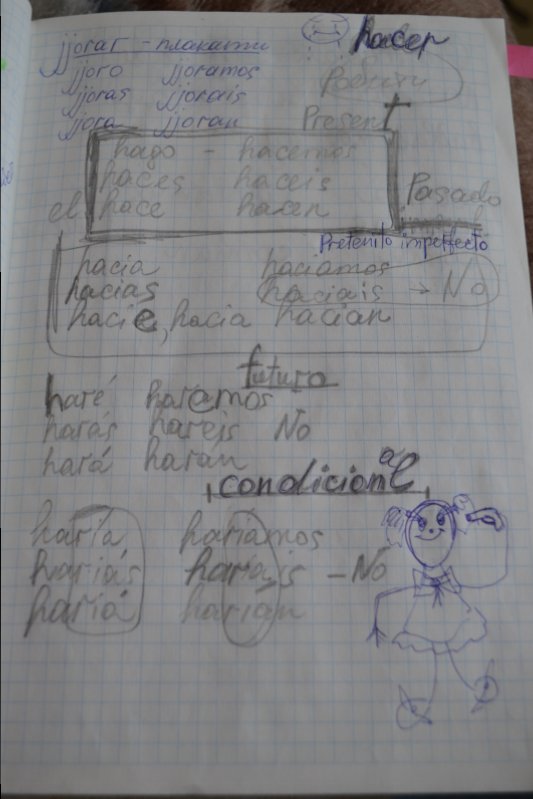 jjorar - плакати
hacer
jjoro jjoramos
Робити
jjoras jjorais
jjora jjoran Present
hago - hacemos
haces haceis Pasado
el hace hacen
Pretenito imperfecto
hacia haciamos
hacias haciais → No
hacie, hacia hacian
futuro
haré haremos
harás hareis No
hará haran
condicional
haría haríamos
hariás hariais - No
hariá harián